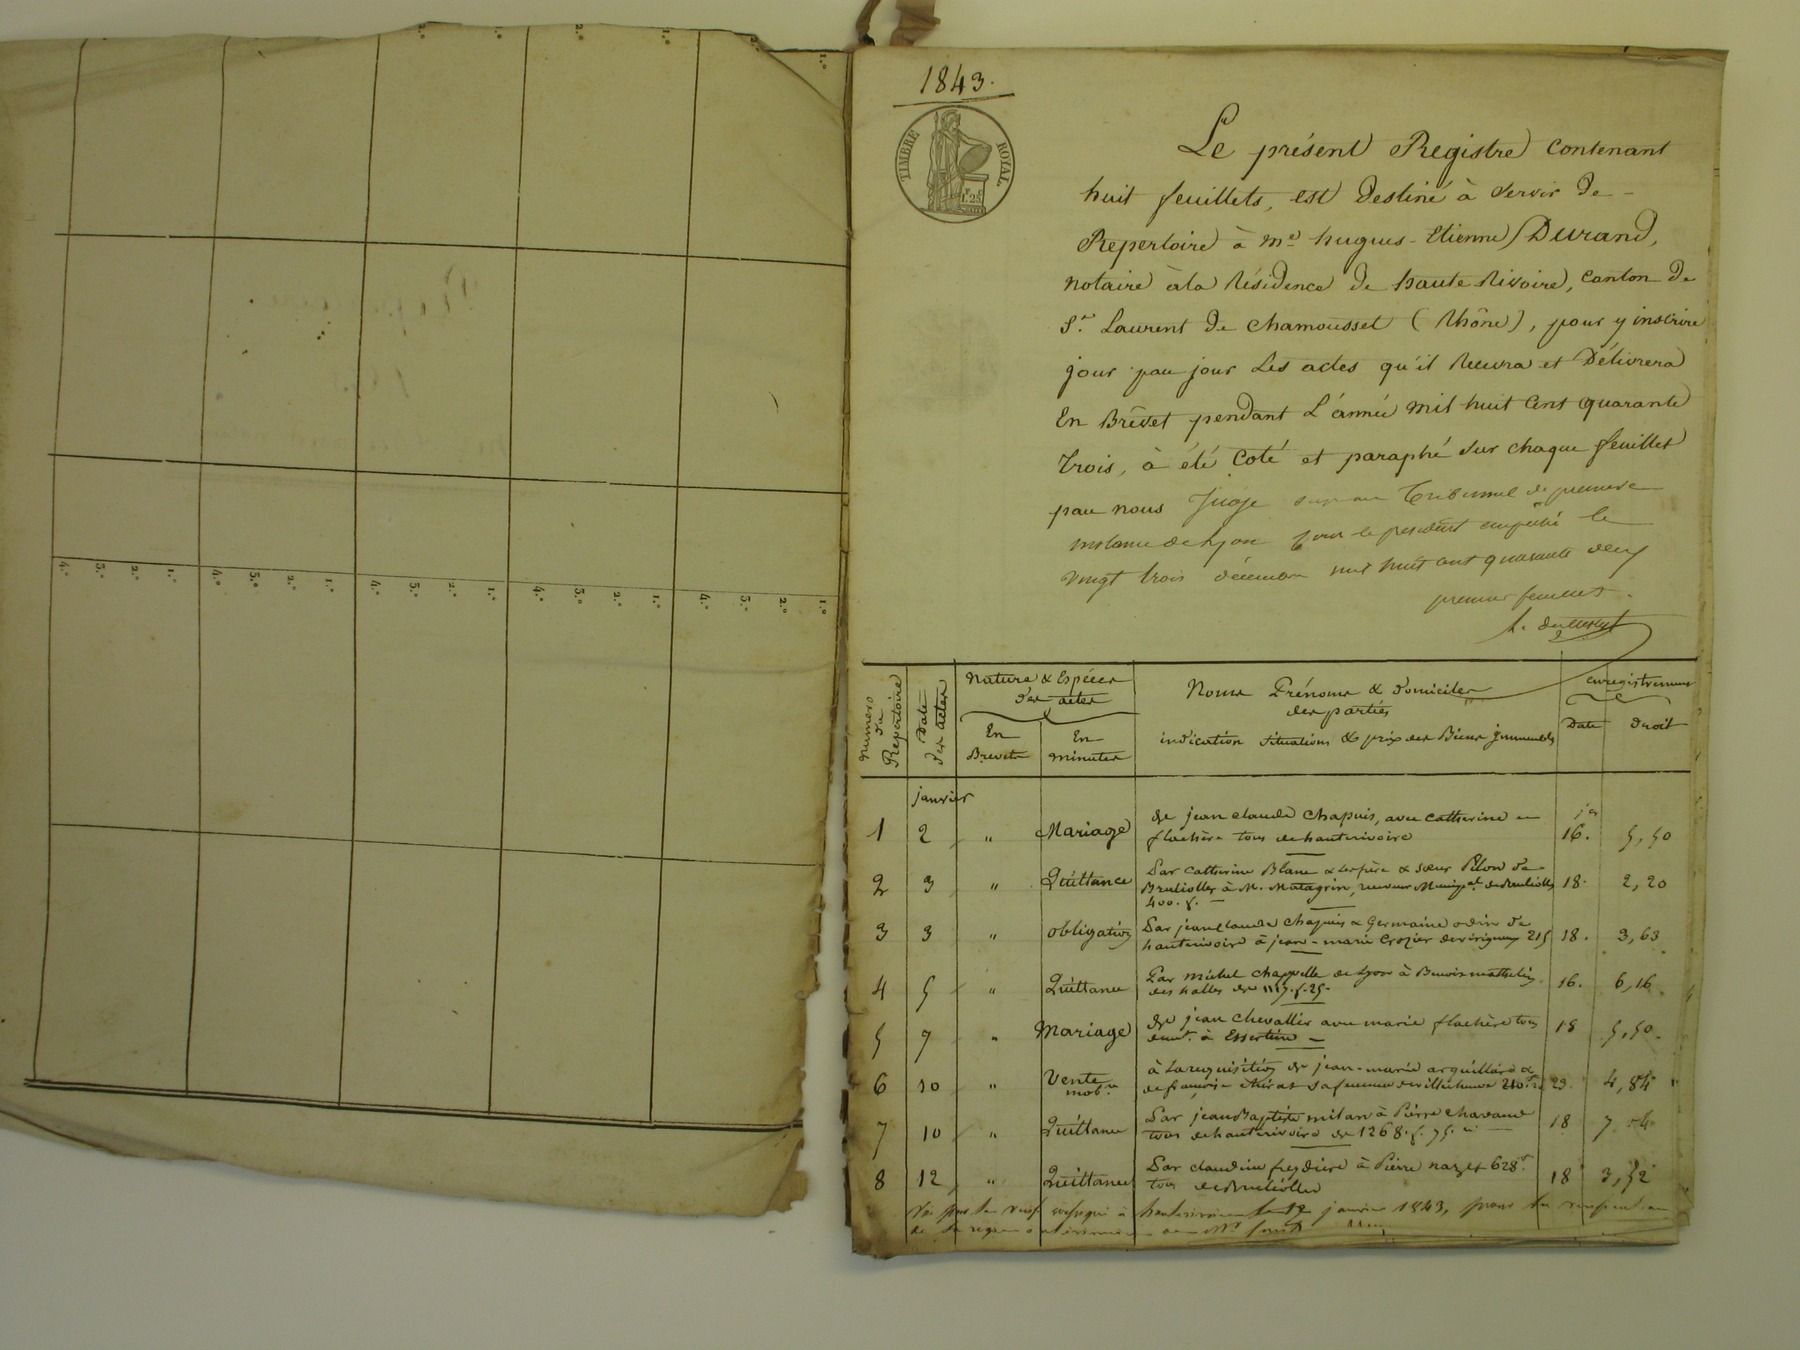 1843.
TIMBRE ROYAL
1F.25c
Le présent Registre contenant
huit feuillets, est destiné à servir de
Repertoire à Me hugues-Etienne Durand,
notaire à la Résidence de haute Rivoire, canton de
St. Laurent de Chamousset (Rhône), pour y inscrire
jour par jour Les actes qu'il Recevra et Délivrera
En Brevet pendant L'année mil huit Cent quarante
trois, à été Coté et paraphé sur chaque feuillet
par nous Juge au Tribunal de première
instance de Lyon pour le président empêché le
vingt trois décembre mil huit cent quarante deux
premier feuillet.
Numéros du Repertoire
Date des actes
Nature & Espèces des actes
En Brevets
En minutes
Noms Prénoms & domiciles
des parties
indication situations & prix des Biens immeubles
enregistrement
Date
Droit
janvier
1 2 " Mariage de jean claude Chapuis, avec Catherine
flachère tous de hauterivoire jer 16. 5,50
2 3 " Quittance Par Catherine Blanc & les frère & sœur Pilon de
Brullioles à M. Matagrin, receveur Municipal de Brullioles
400.f. 18. 2,20
3 3 " obligation Par jean claude Chapuis & Germaine odin de
hauterivoire à jean-marie Crozier de virigneux 215 18. 3,63
4 5 " Quittance Par michel chappelle de Lyon à Benoit mathelin
des halles de 1117.f.25. 16. 6,16
5 7 " Mariage de jean Chevallier avec marie flachère tous
demt. à Essertine 18 5,50.
6 10 " Vente mobre. à La requisition de jean-marie arquillière &
de françoise sa femme de villechenève 210f 23 4,84
7 10 " Quittance Par jean Baptiste milan à Pierre Chavand
tous de hauterivoire de 1268.f.75.c 18 7
8 12 " Quittance Par claudine freydière à Pierre 628f.
tous de Brullioles 18 3,52
à hauterivoire le 12 janvier 1843,